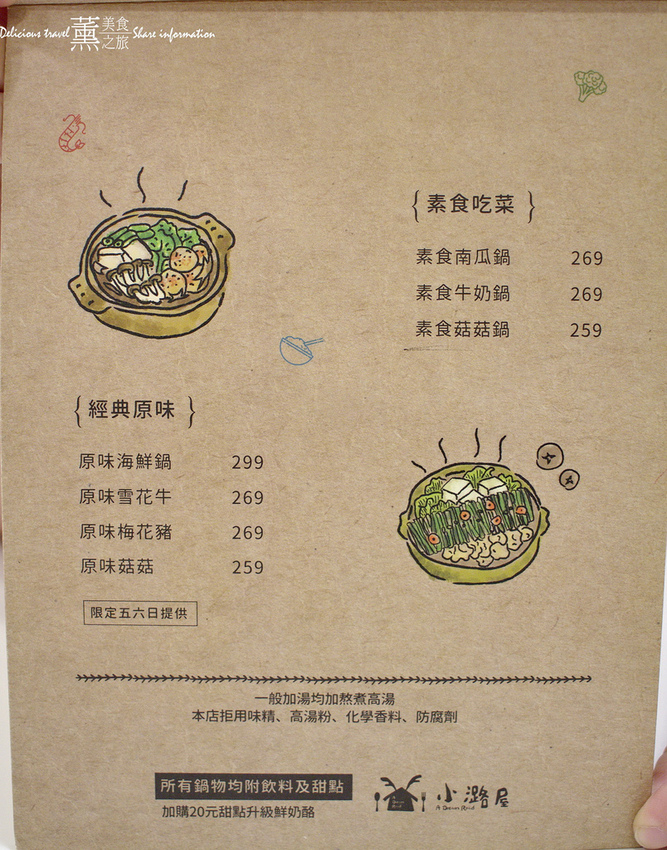 Delicious travel 薰 美食之旅 Share information
{素食吃菜}
素食南瓜鍋 269
素食牛奶鍋 269
素食菇菇鍋 259
{經典原味}
原味海鮮鍋 299
原味雪花牛 269
原味梅花豬 269
原味菇菇 259
限定五六日提供
一般加湯均加熬煮高湯
本店拒用味精、高湯粉、化學香料、防腐劑
所有鍋物均附飲料及甜點
加購20元甜點升級鮮奶酪
小潞屋